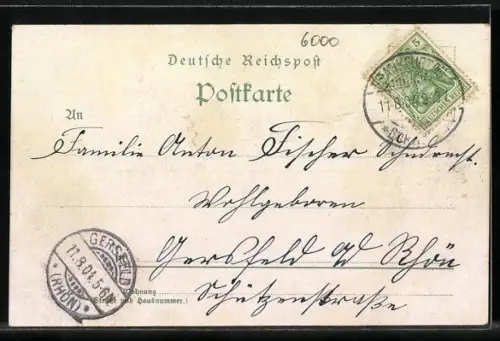 6000
Deutsche Reichspost
Postkarte
An
Familie Anton Fischer
Wohlgeboren
Gersfeld a/d Rhön
Schützenstraße
Wohnung
(Straße und Hausnummer.)
GERSFELD
11.8.01.5-6N
* (RHÖN) *
5
11.8.01